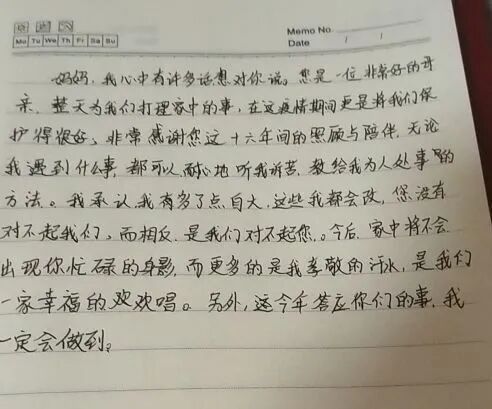 Memo No.
Mo Tu We Th Fr Sa Su
Date / /
妈妈，我心中有许多话想对你说。您是一位非常好的母
亲，整天为我们打理家中的事，在这疫情期间更是将我们保
护得很好。非常感谢您这十六年间的照顾与陪伴，无论
我遇到什么事，都可以耐心地听我诉苦，教给我为人处事的
方法。我承认，我有多了点自大，这些我都会改，您没有
对不起我们，而相反，是我们对不起您。今后，家中将不会
出现你忙碌的身影，而更多的是我孝敬的汗水，是我们
一家幸福的欢欢唱。另外，这今年答应你们的事，我
一定会做到。